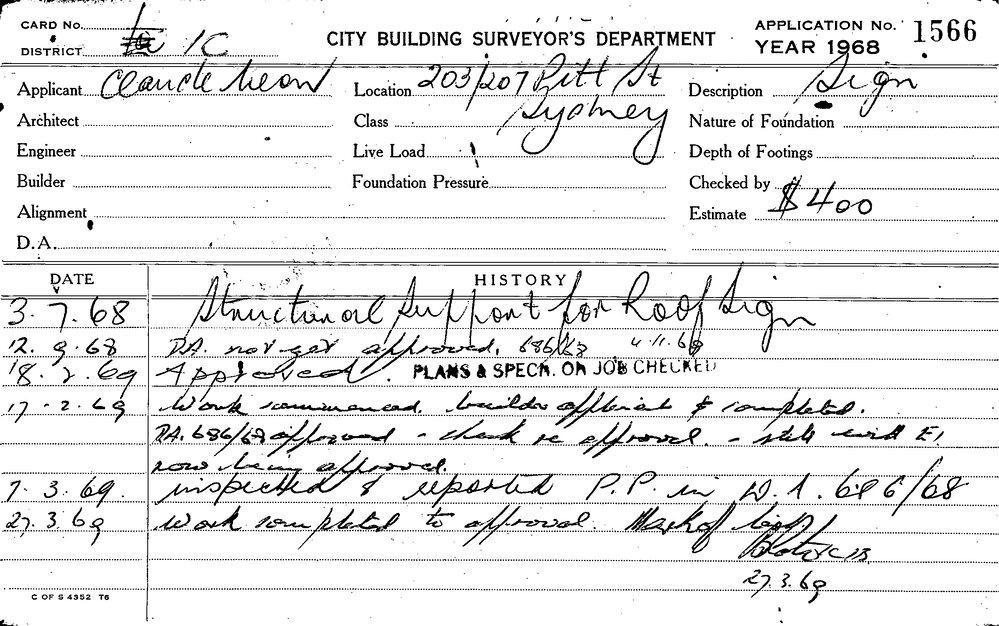 CARD No.
DISTRICT 1C
CITY BUILDING SURVEYOR'S DEPARTMENT
APPLICATION No. 1566
YEAR 1968
Applicant Claude Neon
Location 203/207 Pitt St
Sydney
Description Sign
Architect
Class
Nature of Foundation
Engineer
Live Load
Depth of Footings
Builder
Foundation Pressure
Checked by
Alignment
Estimate $400
D.A.
DATE HISTORY
3.7.68 Structural Support for Roof Sign
12.9.68 D.A. not yet approved. 686/68 4.11.68
18.2.69 Approved. PLANS & SPECN. ON JOB CHECKED
17.2.69 Work commenced. builder & completed.
D.A. 686/68 approved - check re approval. - still with E1
now being approved.
7.3.69. inspected & reported P.P. in D.A. 686/68
27.3.69 Work completed to approval.
27.3.69
C OF S 4352 T6